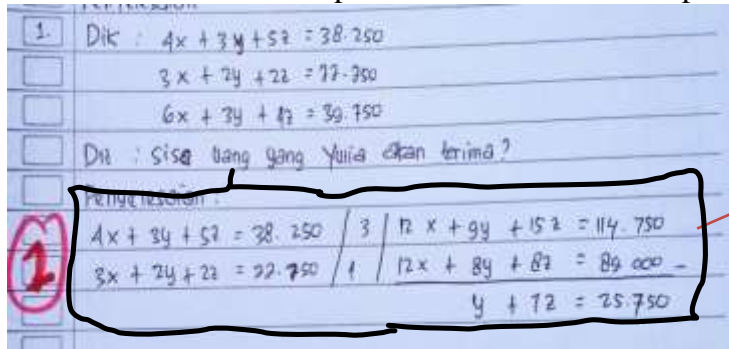 Penyelesaian
1. Dik : 4x + 3y + 5z = 38.250
3x + 2y + 2z = 22.250
6x + 3y + 4z = 39.750
Dit : Sisa uang yang Yulia akan terima?
Penyelesaian :
4x + 3y + 5z = 38.250 / 3 / 12x + 9y + 15z = 114.750
3x + 2y + 2z = 22.250 / 1 / 12x + 8y + 8z = 89.000 -
2
y + 7z = 25.750